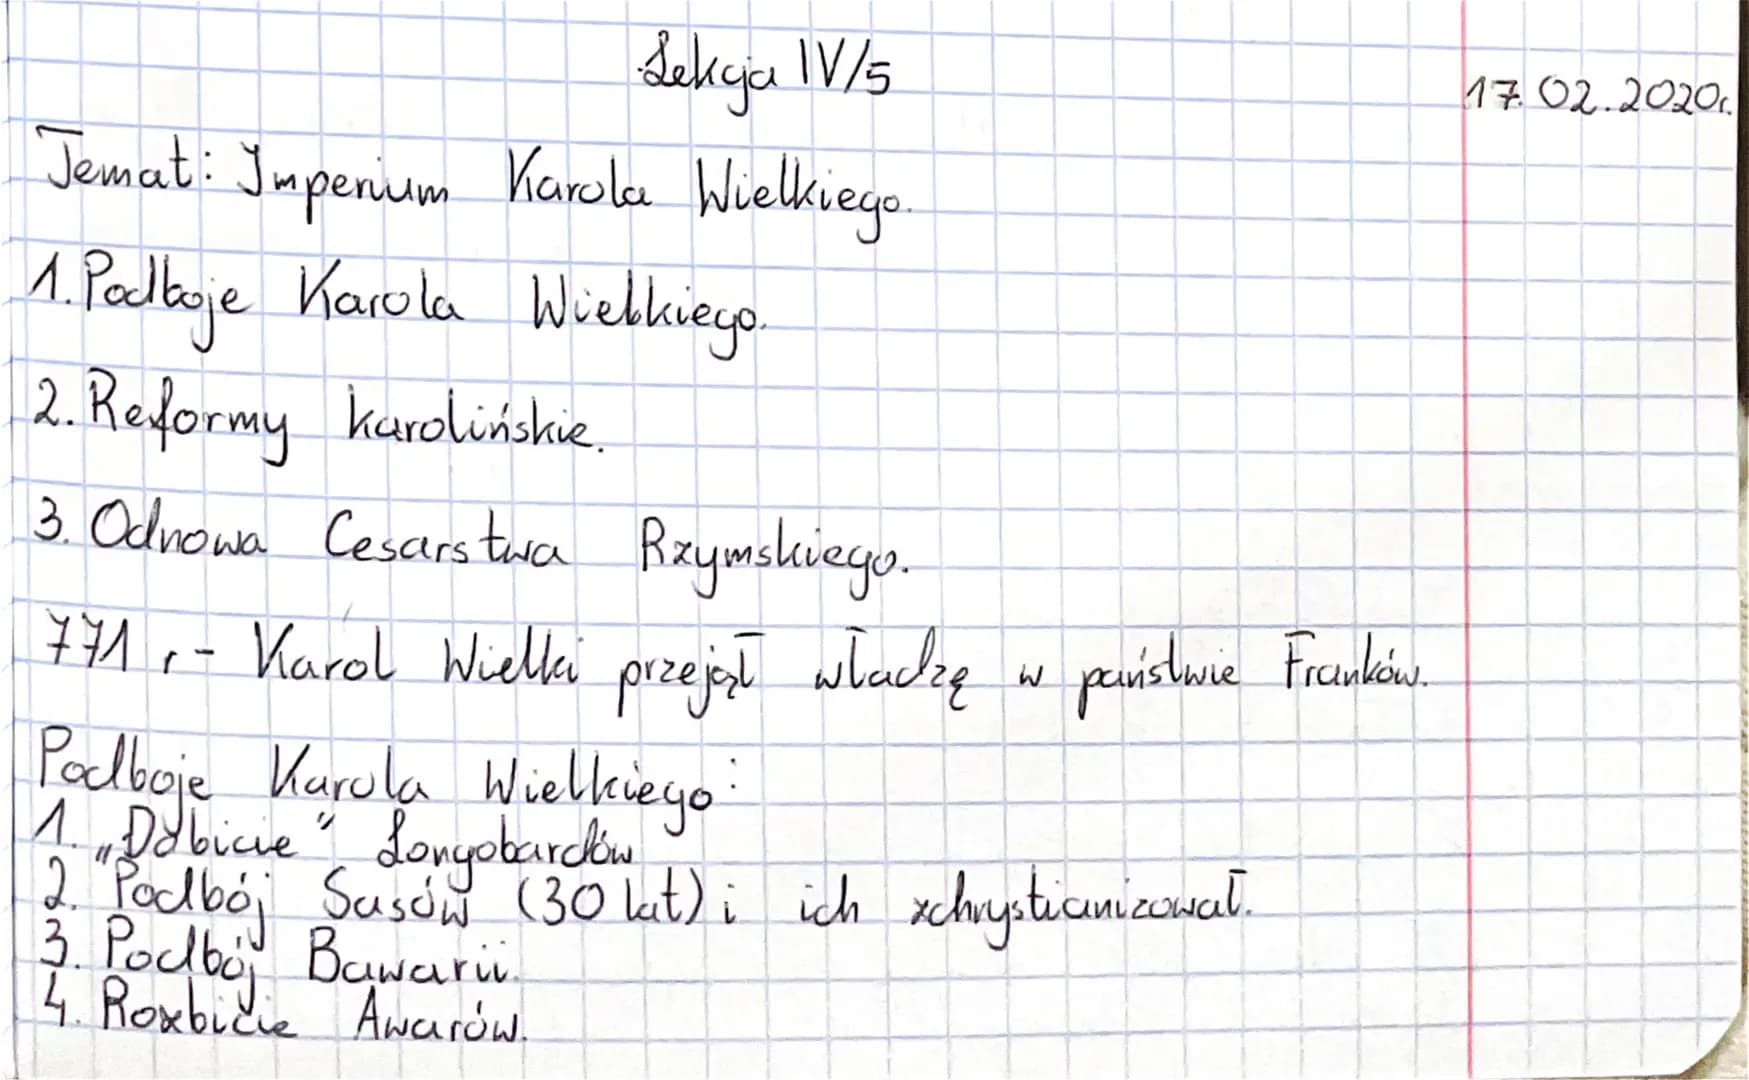 Lekcja IV/5
17.02.2020r.
Temat: Imperium Karola Wielkiego.
1. Podboje Karola Wielkiego.
2. Reformy karolińskie.
3. Odnowa Cesarstwa Rzymskiego.
771 r- Karol Wielki przejął władzę w państwie Franków.
Podboje Karola Wielkiego:
1. „Dobicie" Longobardów
2. Podbój Sasów (30 lat) i ich zchrystianizował.
3. Podbój Bawarii.
4. Rozbicie Awarów.